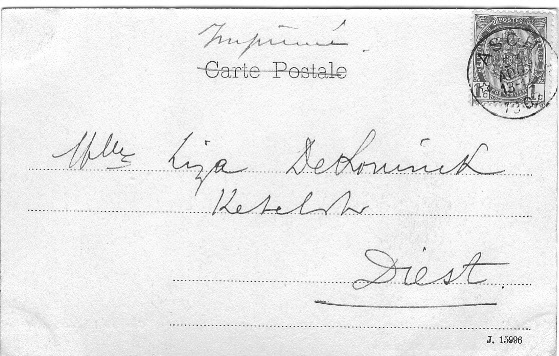 Imprimé.
Carte Postale
POSTES
ASCH
Mlle Liza DeKoninck
Ketelstr
Diest.
J. 15996